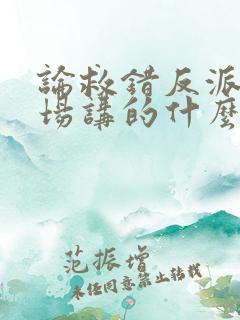 論救錯反派
場講的什麼
范振增
未經同意禁止轉載